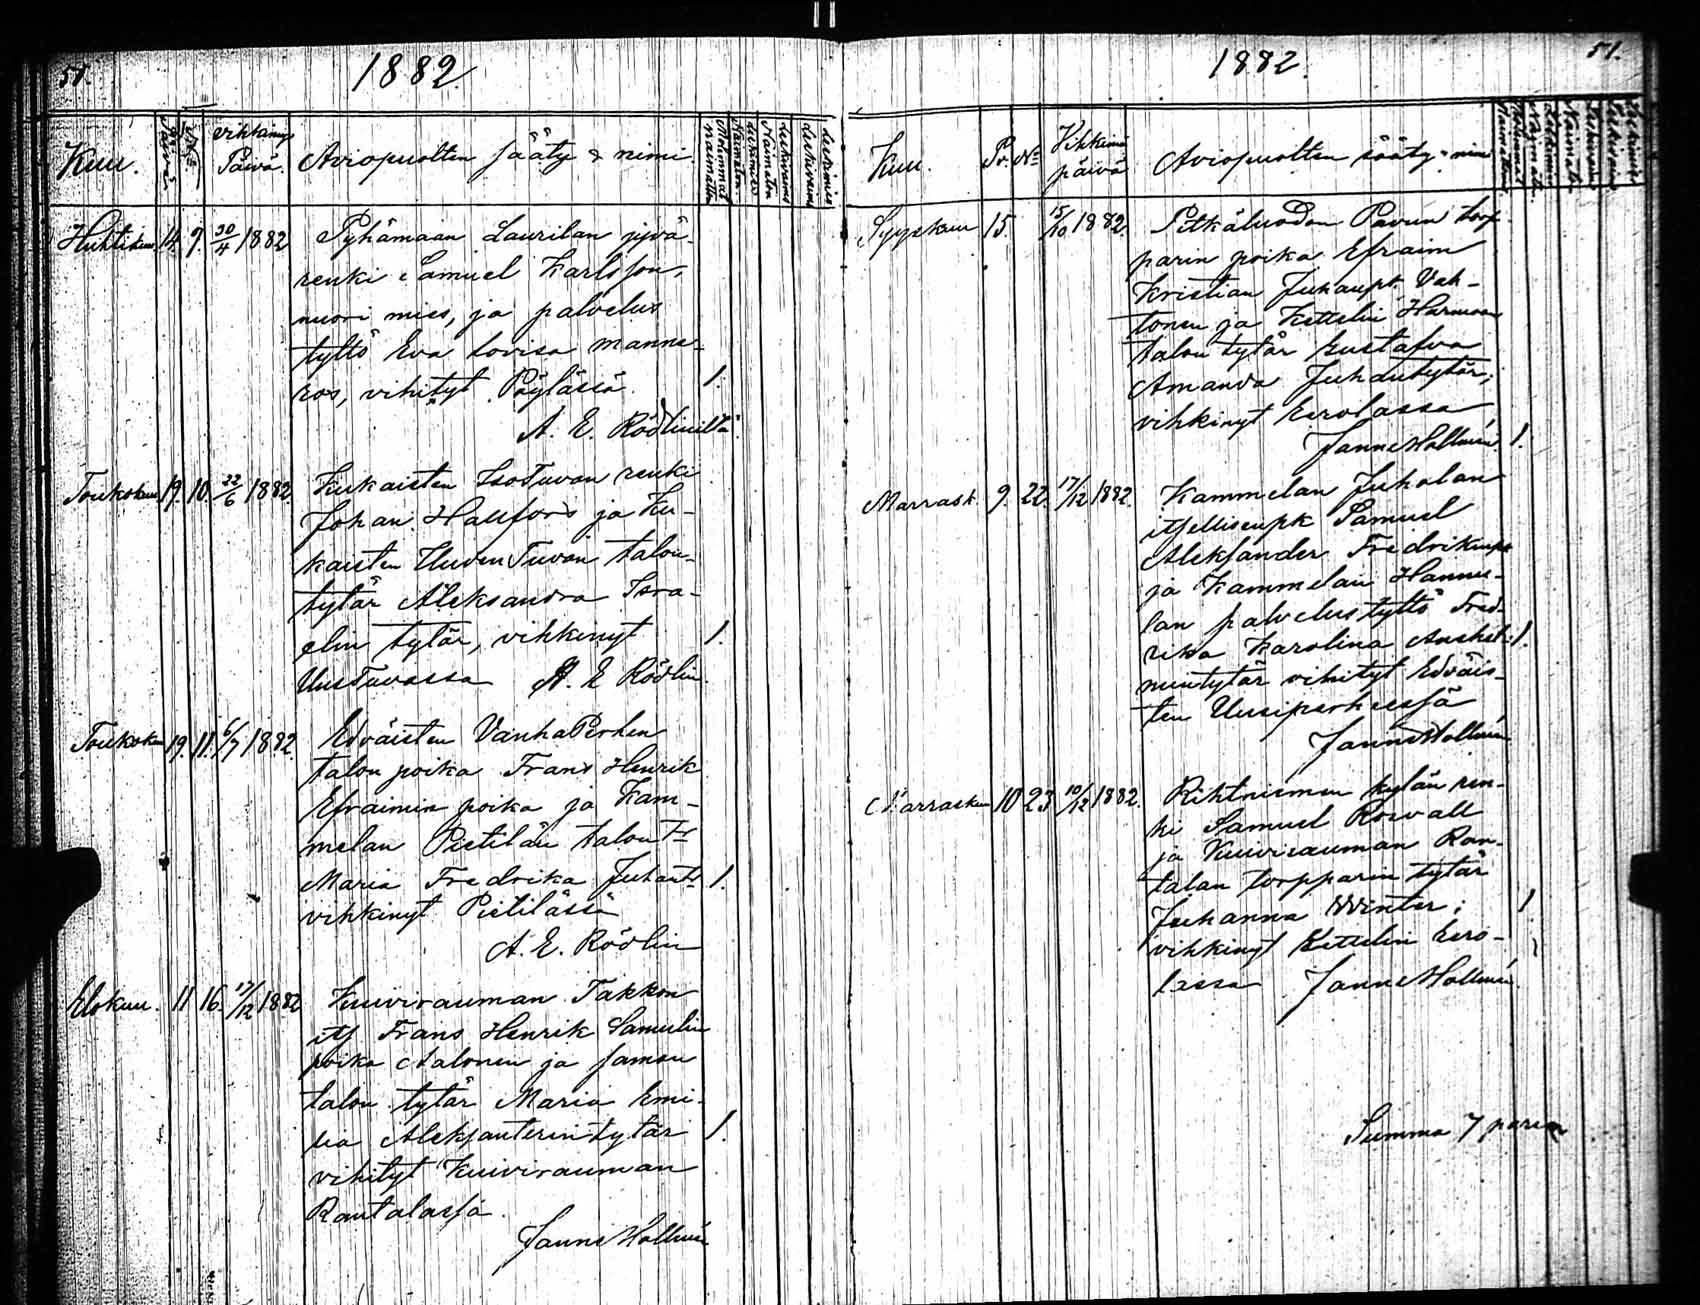 51.
1882.
Kuu.
vihkimys
Päivä.
Aviopuolten sääty & nimi.
Huhtikuu 14. 9. 30/4 1882
Pyhämaan Laurilan jyvä-
renki Samuel Karlsson,
nuori mies, ja palvelus
tyttö Eva Lovisa Manne-
ros, vihityt Pöylässä. 1.
A. E. Rödliniltä.
Toukokuu 19. 10. 22/6 1882
Kukaisten IsoTuvan renki
Johan Hallfors ja Ku-
kaisten UudenTuvan talon-
tytär Aleksandra Isra-
elin tytär, vihkinyt 1.
UusTuvassa A. E Rödlin.
Toukokuu 19. 11. 6/7 1882
Edväisten VanhaPerhen
talon poika Frans Henrik
Efraimin poika ja Kam-
melan Pietilän talon Tr
Maria Fredrika Juhant. 1.
vihkinyt Pietilässä
A. E. Rödlin
Elokuu. 11 16. 17/12 1882
Kuivirauman Takkon
itj Frans Henrik Samulin
poika Aalonen ja saman
talon tytär Maria Emi-
lia Aleksanterintytär 1.
vihityt Kuivirauman
Rantalassa.
Janne Hallmén
1882.
51.
Kuu.
Pv. No
Vihkimä
päivä
Aviopuolten sääty & nimi
Syyskuu 15. 15/10 1882.
Pitkäluodon Pavun torp-
parin poika Efraim
Kristian Juhanp. Vah-
tonen ja Kettelin Harmaan
talon tytär Gustafva
Amanda Juhantytär,
vihkinyt Eerolassa
Janne Hallmén. 1.
Marrask. 9. 22. 17/12 1882.
Kammelan Juhalan
itsellisenpk Samuel
Aleksander Fredrikinp.
ja Kammelan Hannu-
lan palvelustyttö Fred-
rika Karolina Anshel- 1.
mintytär vihityt Edväis-
ten Uusiperheessä
Janne Hallmén
Marraskuu 10 23 10/12 1882.
Rihtniemen kylän ren-
ki Samuel Rosvall
ja Kuivirauman Ran-
talan torpparin tytär
Juhanna Winter; 1
vihkinyt Kettelin Eero-
lassa Janne Hallmén.
Summa 7 paria